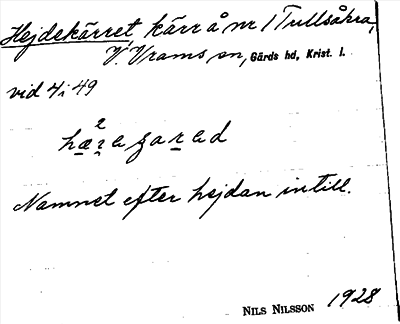 Hejdekärret, kärr å nr 1 Tullsåkra,
V. Vrams sn, Gärds hd, Krist. l.
vid 4i49
Namnet efter hejdan intill.
NILS NILSSON 1928